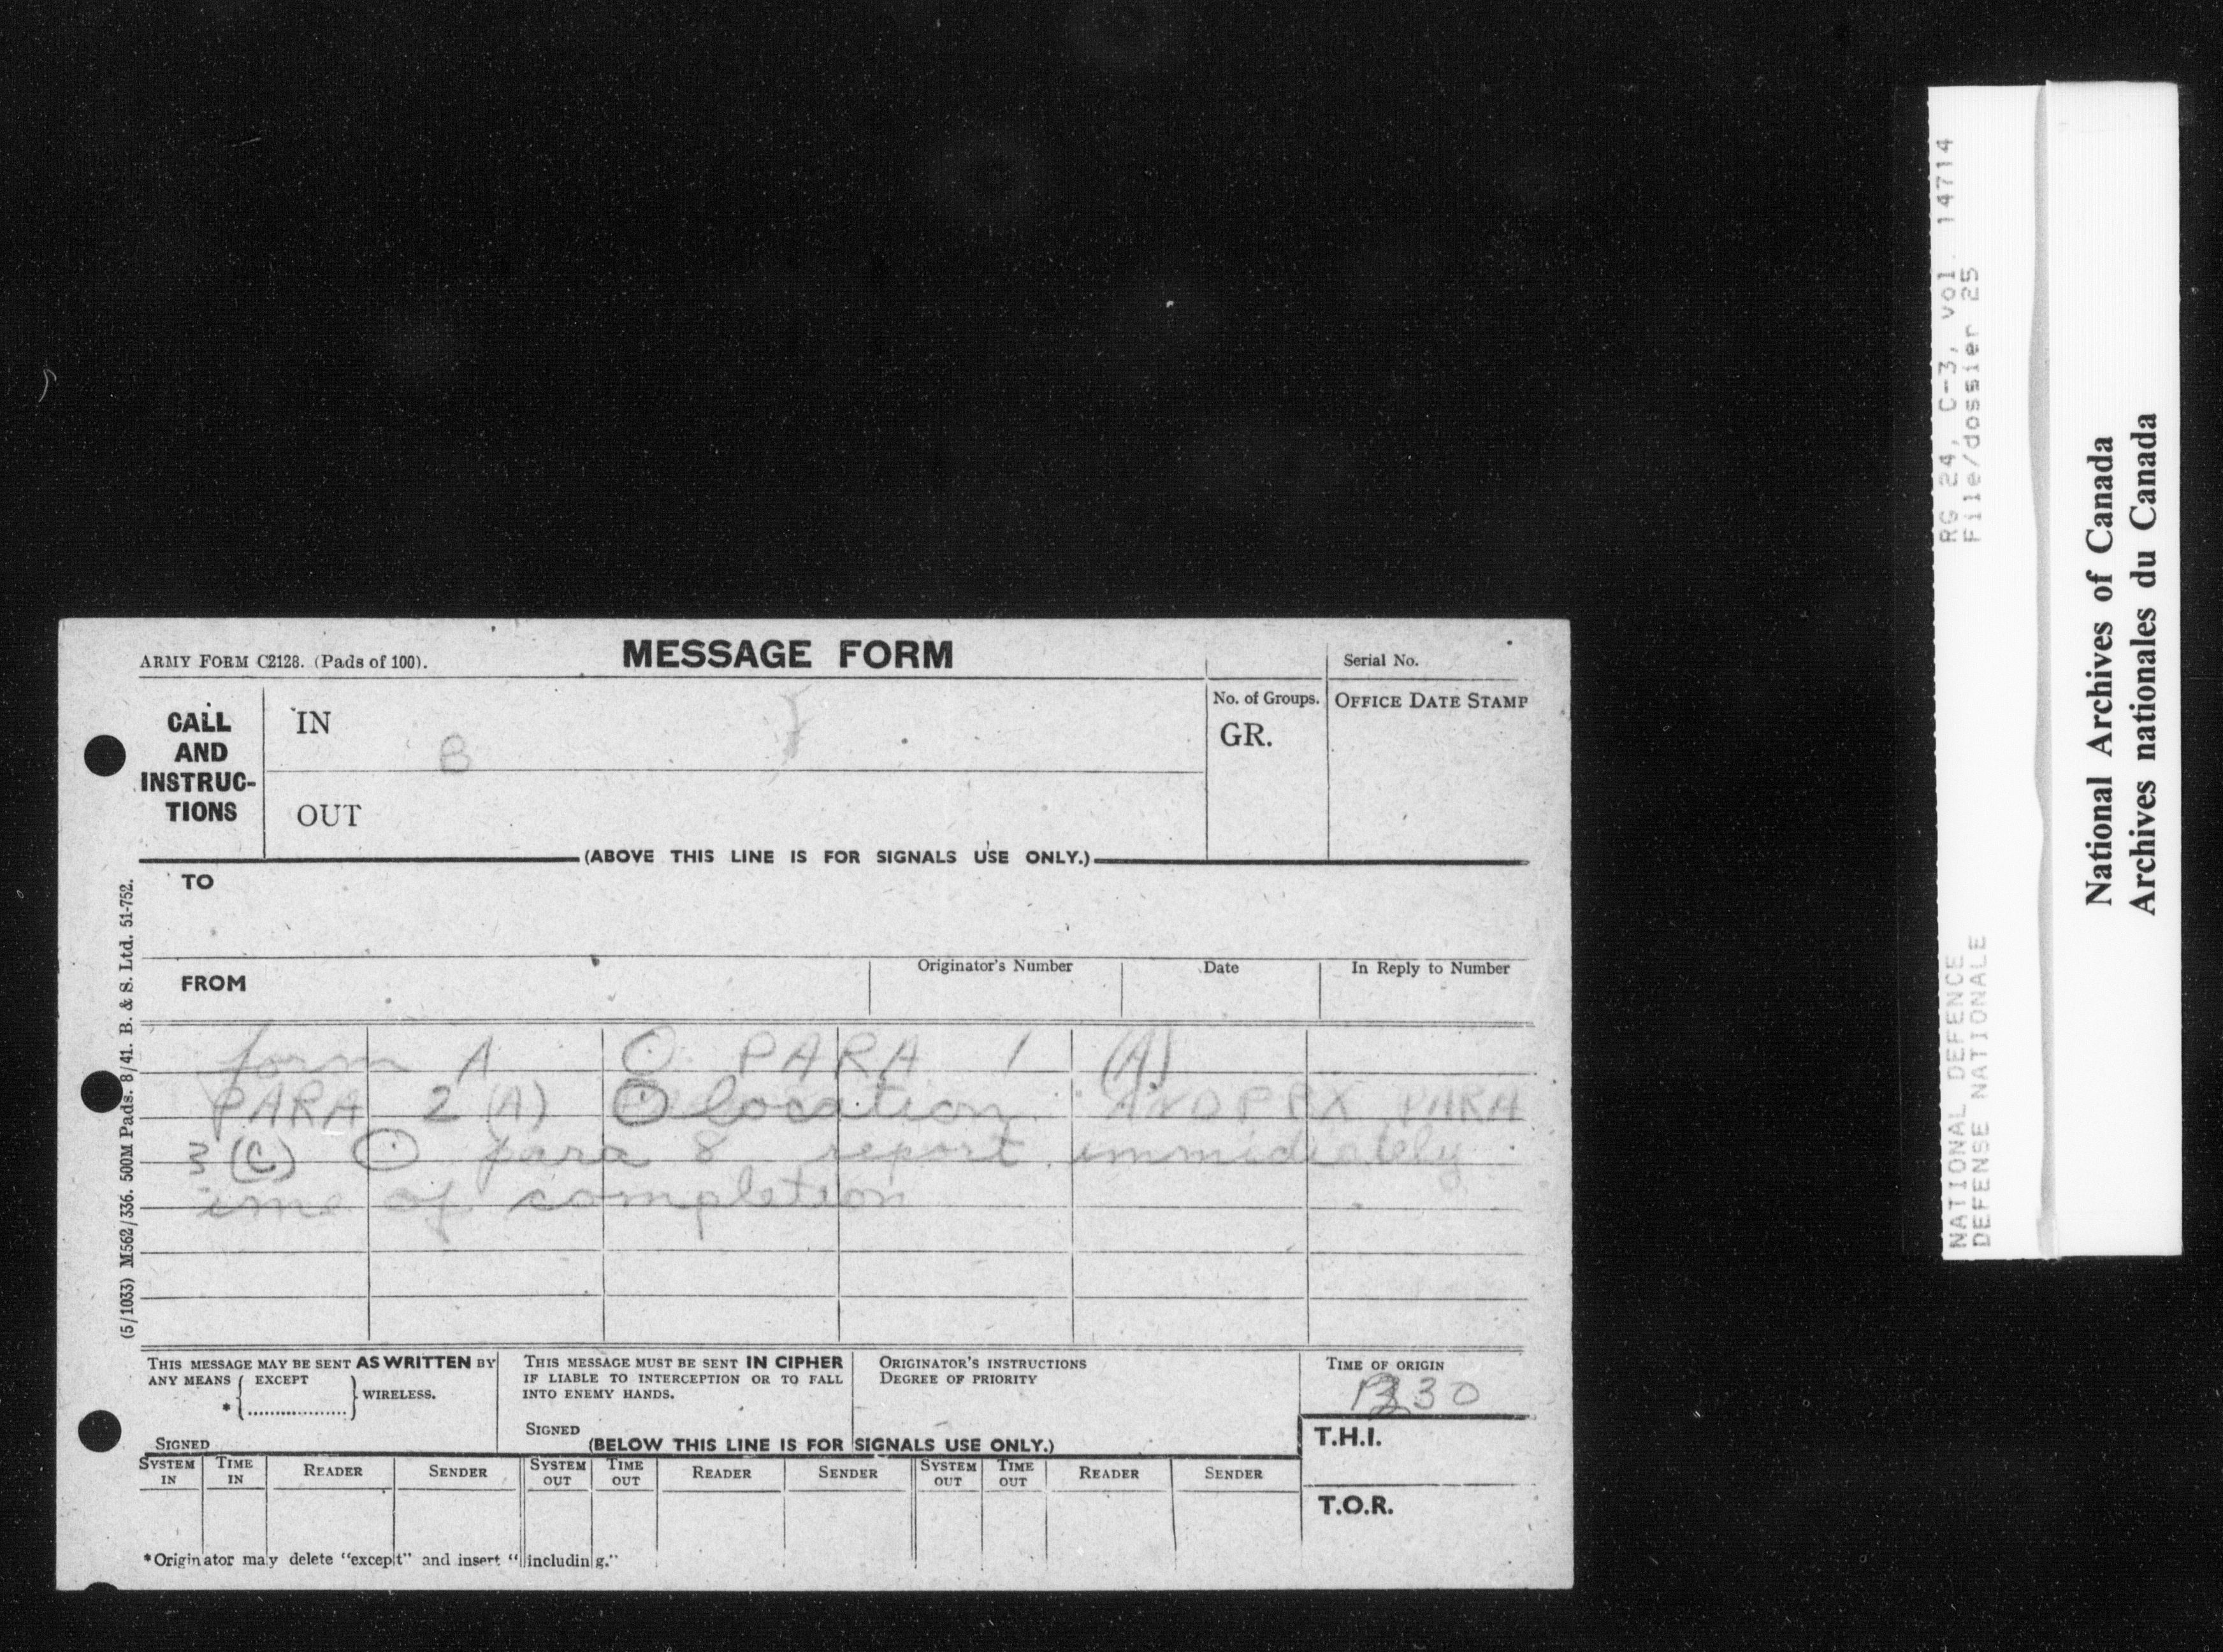 ARMY FORM C2128. (Pads of 100).
MESSAGE FORM
Serial No.
CALL AND INSTRUC-TIONS
IN
B
OUT
No. of Groups.
GR.
OFFICE DATE STAMP
(ABOVE THIS LINE IS FOR SIGNALS USE ONLY.)
TO
FROM
Originator's Number
Date
In Reply to Number
form A ⊙ PARA 1 (A)
PARA 2 (A) ⊙ location PARA
3 (C) ⊙ para 8 report immidiately
ime of completion
THIS MESSAGE MAY BE SENT AS WRITTEN BY
ANY MEANS { EXCEPT
* ................. } WIRELESS.
SIGNED
THIS MESSAGE MUST BE SENT IN CIPHER
IF LIABLE TO INTERCEPTION OR TO FALL
INTO ENEMY HANDS.
SIGNED
ORIGINATOR'S INSTRUCTIONS
DEGREE OF PRIORITY
TIME OF ORIGIN
(BELOW THIS LINE IS FOR SIGNALS USE ONLY.)
T.H.I.
T.O.R.
SYSTEM IN
TIME IN
READER
SENDER
SYSTEM OUT
TIME OUT
READER
SENDER
SYSTEM OUT
TIME OUT
READER
SENDER
*Originator may delete "except" and insert "including."
(5/1033) M562/336. 500M Pads. 8/41. B. & S. Ltd. 51-752.
RG 24, C-3, vol. 14714
File/dossier 25
NATIONAL DEFENCE
DEFENSE NATIONALE
National Archives of Canada
Archives nationales du Canada